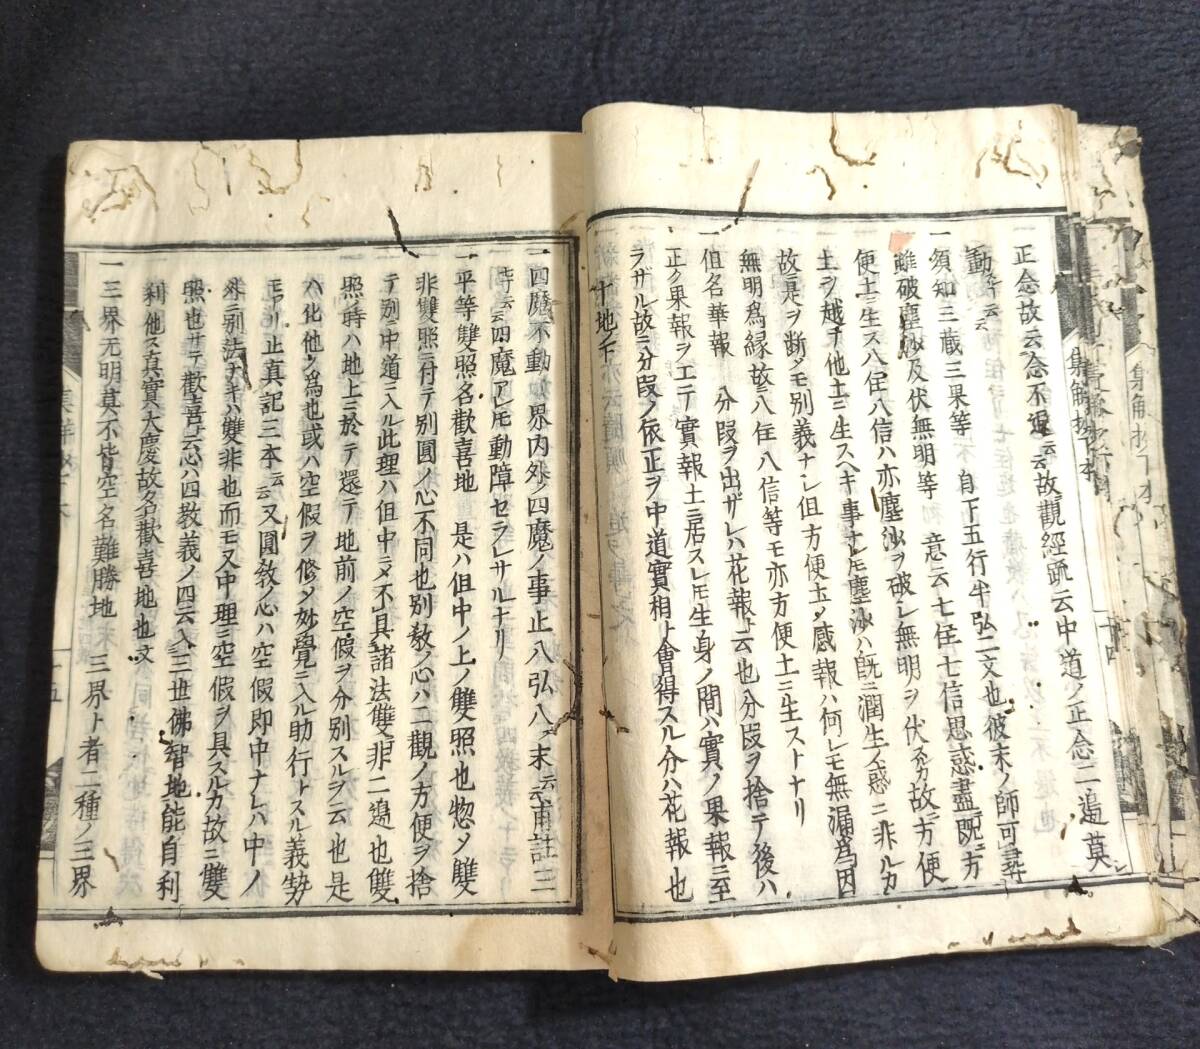 正念故云念不退云云故觀經䟽云中道ノ正念二邊莫
動等云云
一須知三蔵三果等 自下五行半弘二文也彼末ノ師可尋
雖破塵沙及伏無明等 意云七住七信思惑盡既ニ方
便土ニ生ス八住八信ハ亦塵沙ヲ破シ無明ヲ伏スルカ故ニ方便
土ヲ越テ他土ニ生スヘキ事ナレ𪜈塵沙ハ既ニ潤生ノ惑ニ非ルカ
故ニ是ヲ断シモ別義ナシ但方便土ノ感報ハ何レモ無漏爲因
無明爲縁故ニ八住八信等モ亦方便土ニ生ストナリ
一但名華報 分段ヲ出ザレハ花報ト云也分段ヲ捨テ後ハ
正ク果報ヲエテ實報土ニ居スレ𪜈生身ノ間ハ實ノ果報ニ至
ラザル故ニ分段ノ依正ヲ中道實相ト會得スル分ハ花報也
一四魔不動 界内外四魔ノ事止八弘八ノ末云云甫註三
云云四魔アレ𪜈動障セラレサルナリ
一平等雙照名歡喜地 是ハ但中ノ上ノ雙照也惣〆雙
非雙照ニ付テ別圓ノ心不同也別教ノ心ハ二觀ノ方便ヲ捨
テ別〆中道ニ入ル此理ハ但中ニ〆不具諸法雙非二邊也雙
照ノ時ハ地上ニ於テ還テ地前ノ空假ヲ分別スルヲ云也是
ハ化他ノ爲也或ハ空假ヲ修〆妙覺ニ入ル助行トスル義勢
モアリ止真記三本云云又圓教ノ心ハ空假即中ナレハ中ノ
外ニ別法ナキハ雙非也而モ又中理ニ空假ヲ具スルカ故ニ雙
照也サテ歡喜云心ハ四教義ノ四云入三世佛智地能自利
利他ス真實大慶故名歡喜地也文
一三界无明莫不皆空名難勝地 三界ト者二種ノ三界
集解抄下本
十四